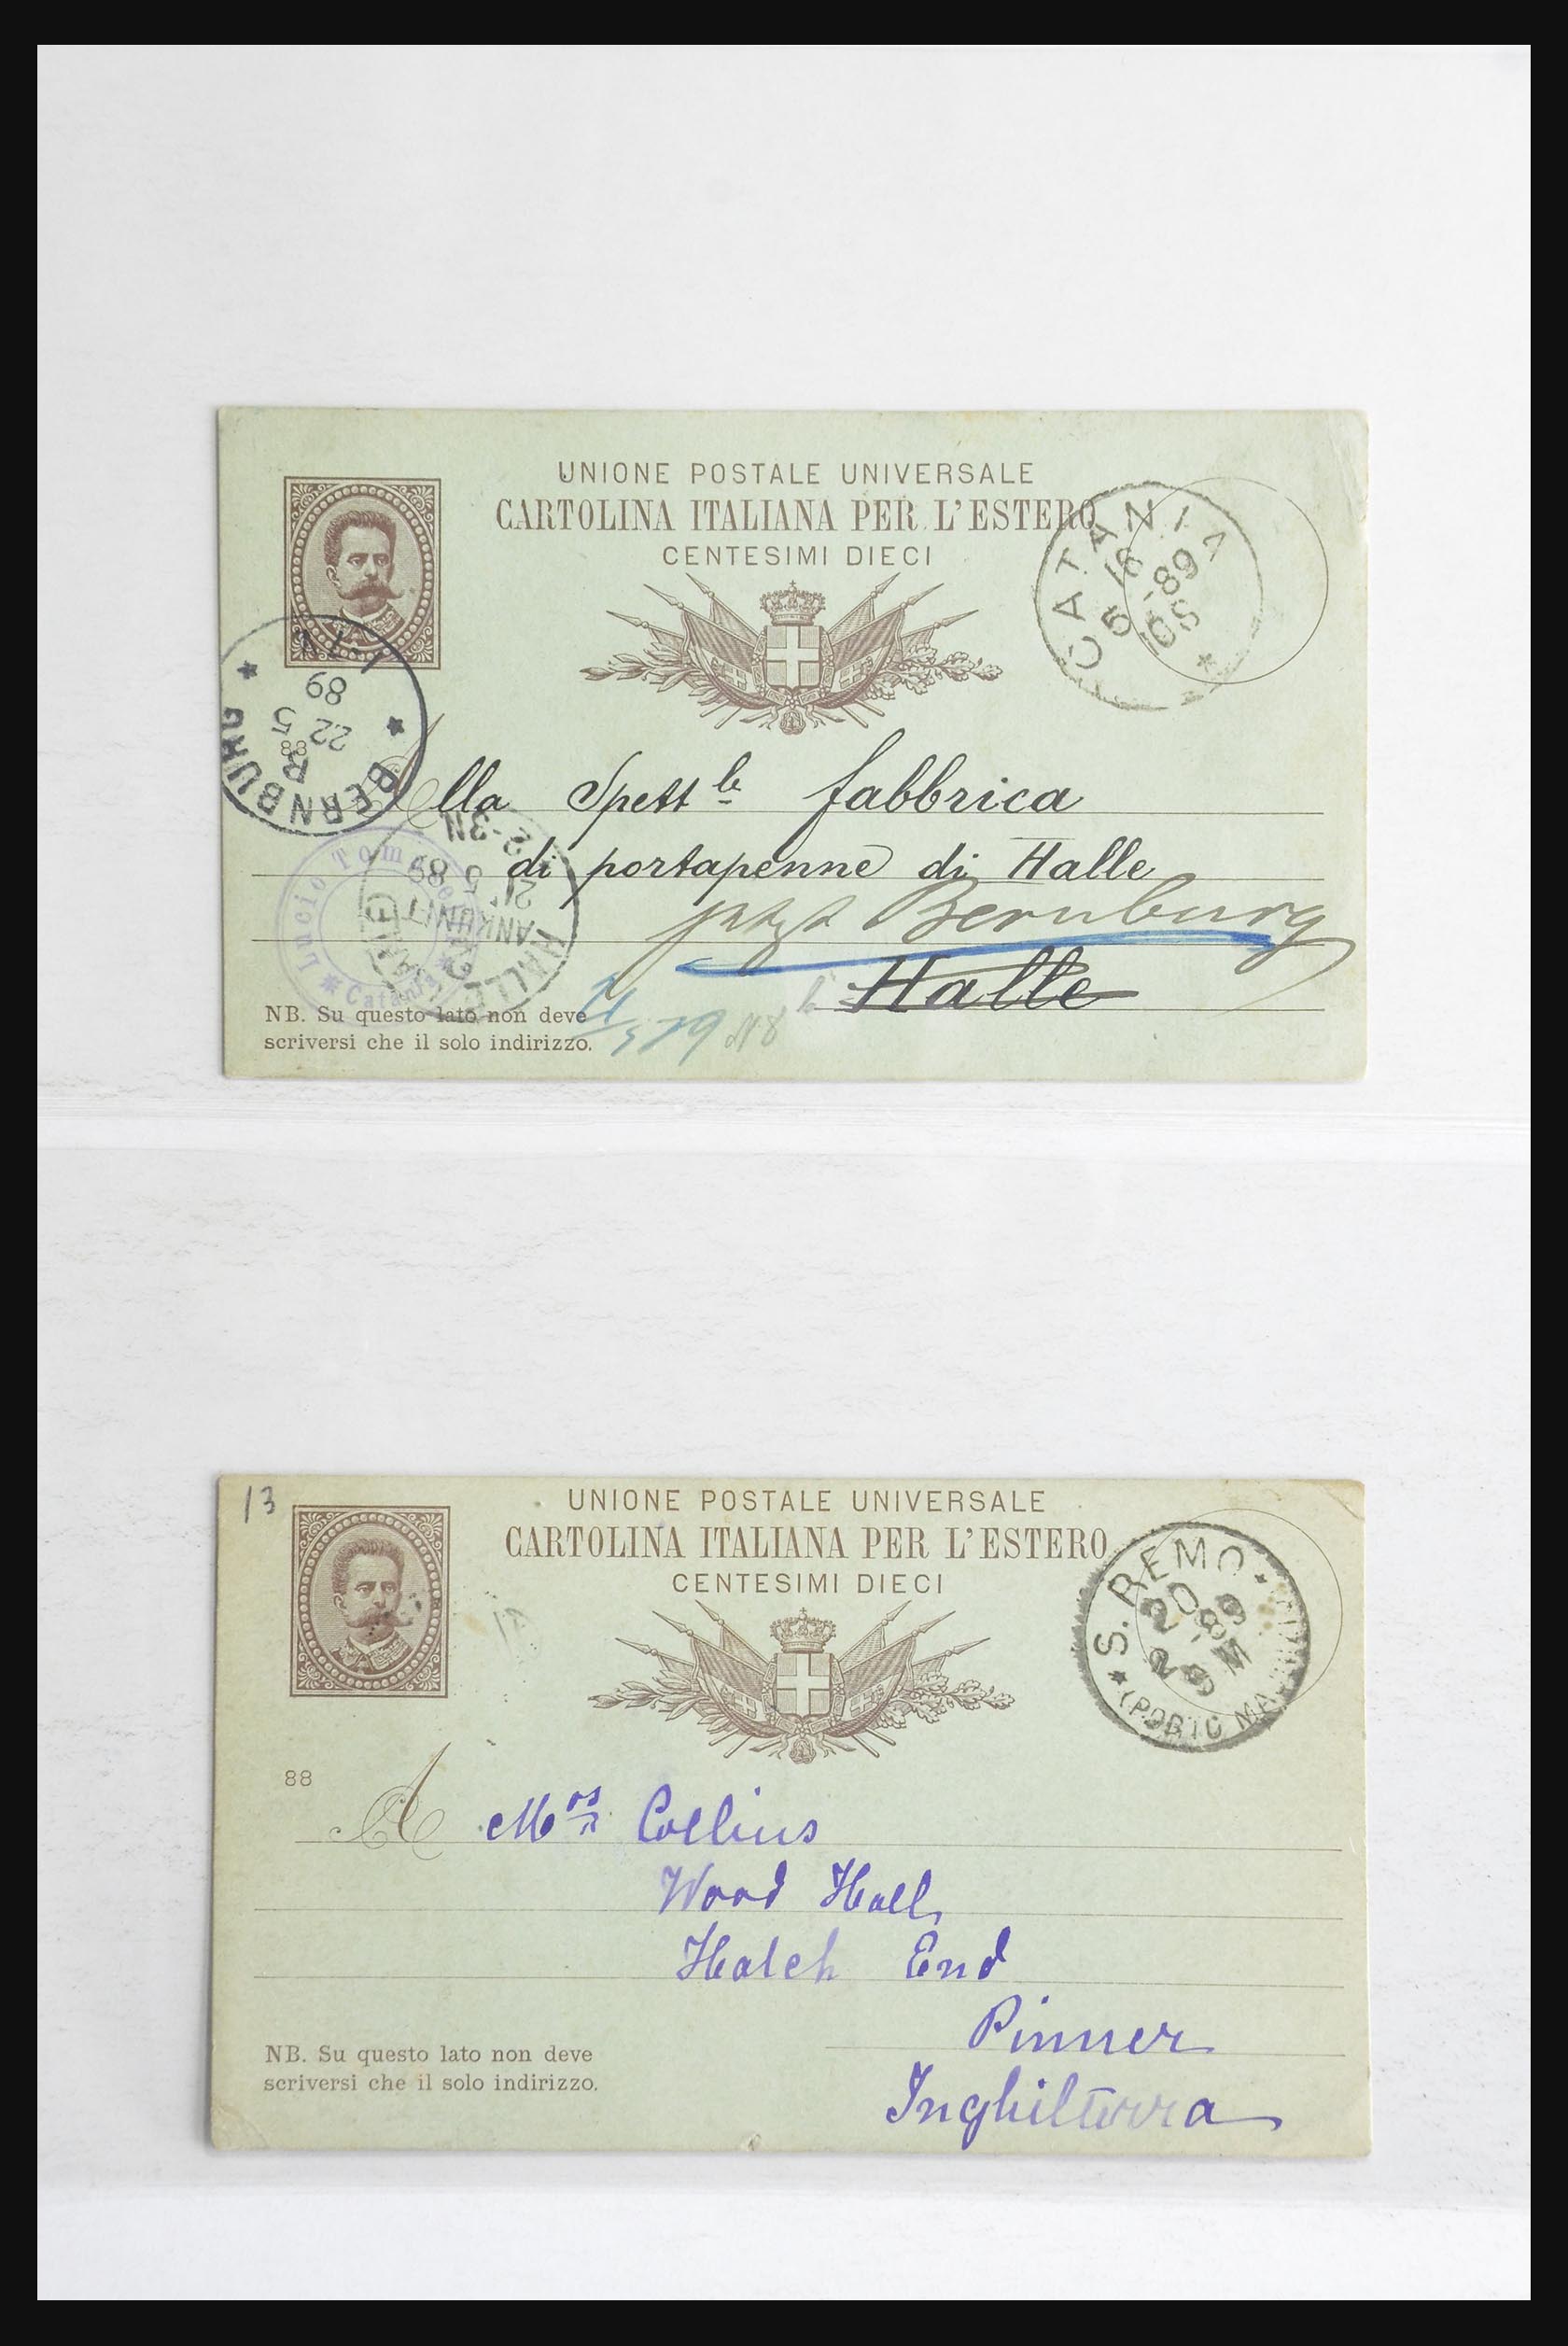 UNIONE POSTALE UNIVERSALE
CARTOLINA ITALIANA PER L'ESTERO
CENTESIMI DIECI
CATANIA
5/8
-89
10 S
1-2 N
89
22 5
88
BERNBURG
Alla Spett.le fabbrica
di portapenne di Halle
jetzt Bernburg
Halle
2-3N
21 5 89
ANKUNFT
HALLE
Lucio Tom
Catania
NB. Su questo lato non deve
scriversi che il solo indirizzo.
13
UNIONE POSTALE UNIVERSALE
CARTOLINA ITALIANA PER L'ESTERO
CENTESIMI DIECI
S. REMO
20
-89
2 9 M
(PORTO MA
88
A Mrs Collins
Wood Hall
Hatch End
Pinner
Inghilterra
NB. Su questo lato non deve
scriversi che il solo indirizzo.